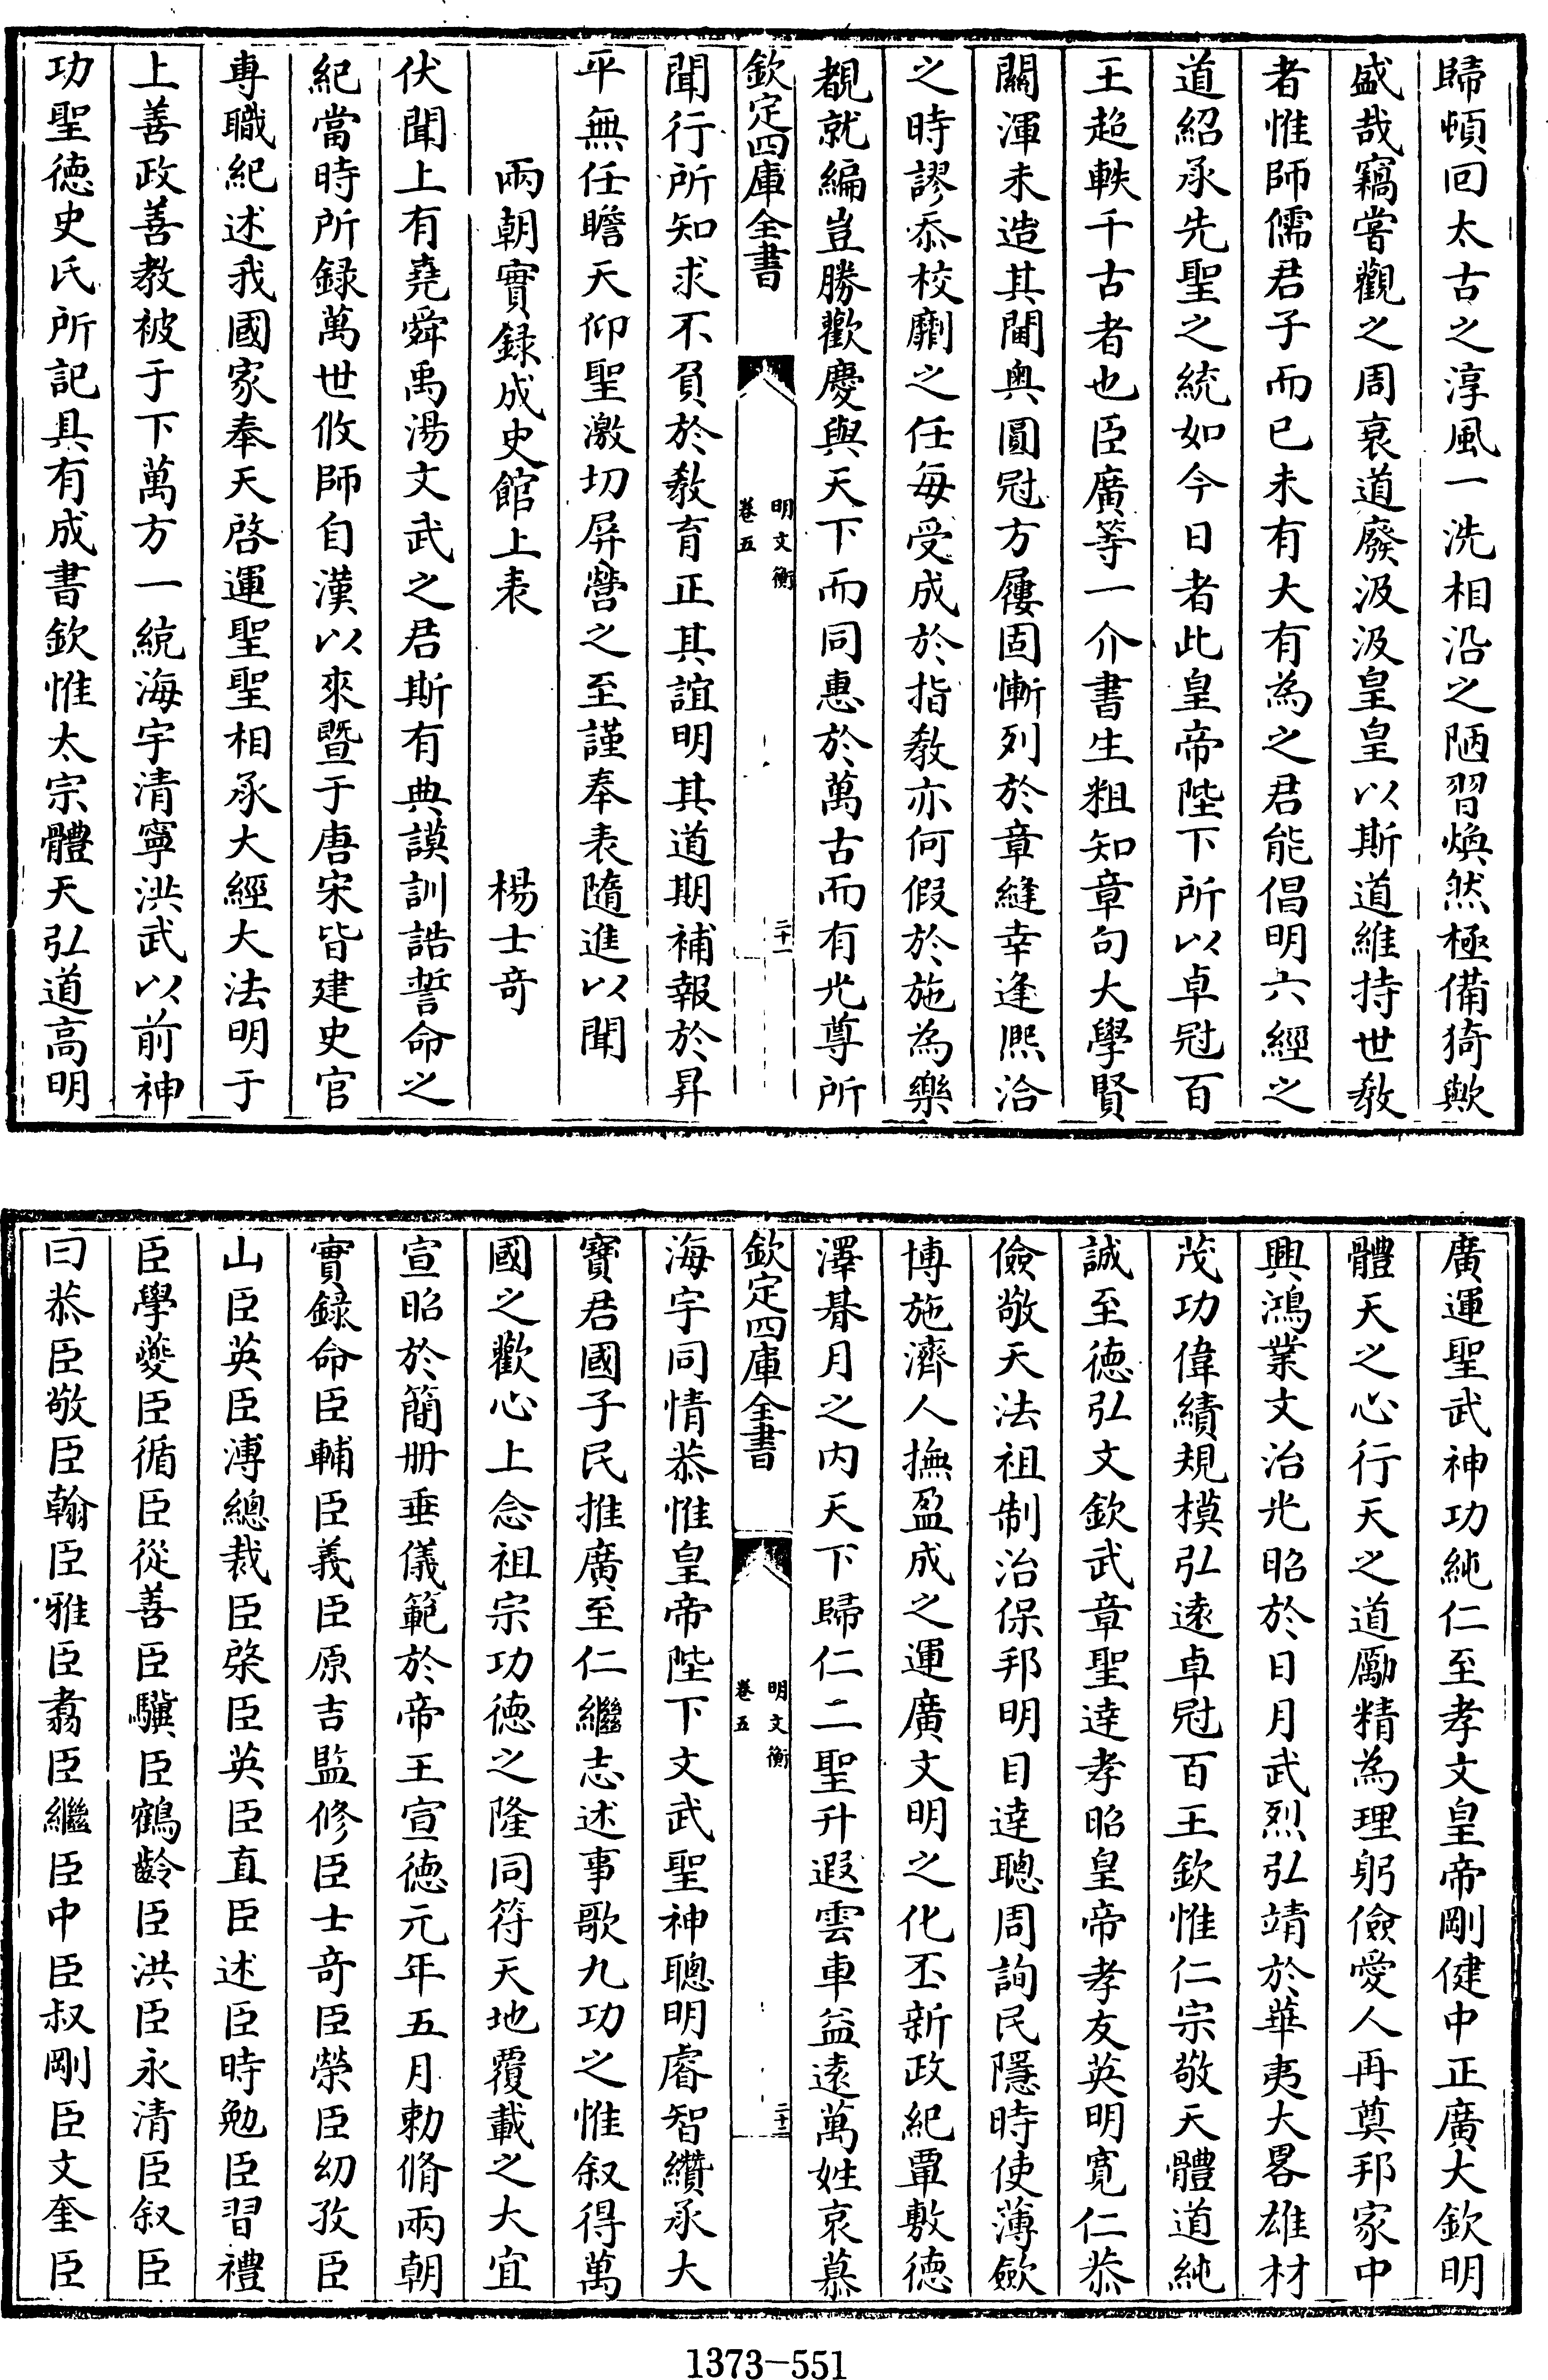 歸頓回太古之淳風一洗相沿之陋習煥然極備猗歟
盛哉竊嘗觀之周衰道廢汲汲皇皇以斯道維持世教
者惟師儒君子而已未有大有為之君能倡明六經之
道紹承先聖之統如今日者此皇帝陛下所以卓冠百
王超軼千古者也臣廣等一介書生粗知章句大學賢
關渾未造其閫奧圓冠方屨固慚列於章縫幸逢熙洽
之時謬忝校讎之任每受成於指教亦何假於施為樂
覩就編豈勝歡慶與天下而同惠於萬古而有光尊所
欽定四庫全書
明文衡
卷五
二十一
聞行所知求不負於教育正其誼明其道期補報於昇
平無任瞻天仰聖激切屏營之至謹奉表隨進以聞
兩朝實録成史館上表 楊士奇
伏聞上有堯舜禹湯文武之君斯有典謨訓誥誓命之
紀當時所録萬世攸師自漢以來暨于唐宋皆建史官
專職紀述我國家奉天啓運聖聖相承大經大法明于
上善政善教被于下萬方一統海宇清寧洪武以前神
功聖德史氏所記具有成書欽惟太宗體天弘道高明
廣運聖武神功純仁至孝文皇帝剛健中正廣大欽明
體天之心行天之道勵精為理躬儉愛人再奠邦家中
興鴻業文治光昭於日月武烈弘靖於華夷大畧雄材
茂功偉績規模弘遠卓冠百王欽惟仁宗敬天體道純
誠至德弘文欽武章聖達孝昭皇帝孝友英明寛仁恭
儉敬天法祖制治保邦明目達聰周詢民隱時使薄歛
博施濟人撫盈成之運廣文明之化丕新政紀覃敷德
澤朞月之内天下歸仁二聖升遐雲車益遠萬姓哀慕
欽定四庫全書
明文衡
卷五
二十二
海宇同情恭惟皇帝陛下文武聖神聰明睿智纘承大
寶君國子民推廣至仁繼志述事歌九功之惟叙得萬
國之歡心上念祖宗功德之隆同符天地覆載之大宜
宣昭於簡册垂儀範於帝王宣德元年五月勅脩兩朝
實録命臣輔臣義臣原吉監修臣士奇臣榮臣幼孜臣
山臣英臣溥總裁臣棨臣英臣直臣述臣時勉臣習禮
臣學夔臣循臣從善臣驥臣鶴齡臣洪臣永清臣叙臣
曰恭臣敬臣翰臣雅臣翥臣繼臣中臣叔剛臣文奎臣
1373-551